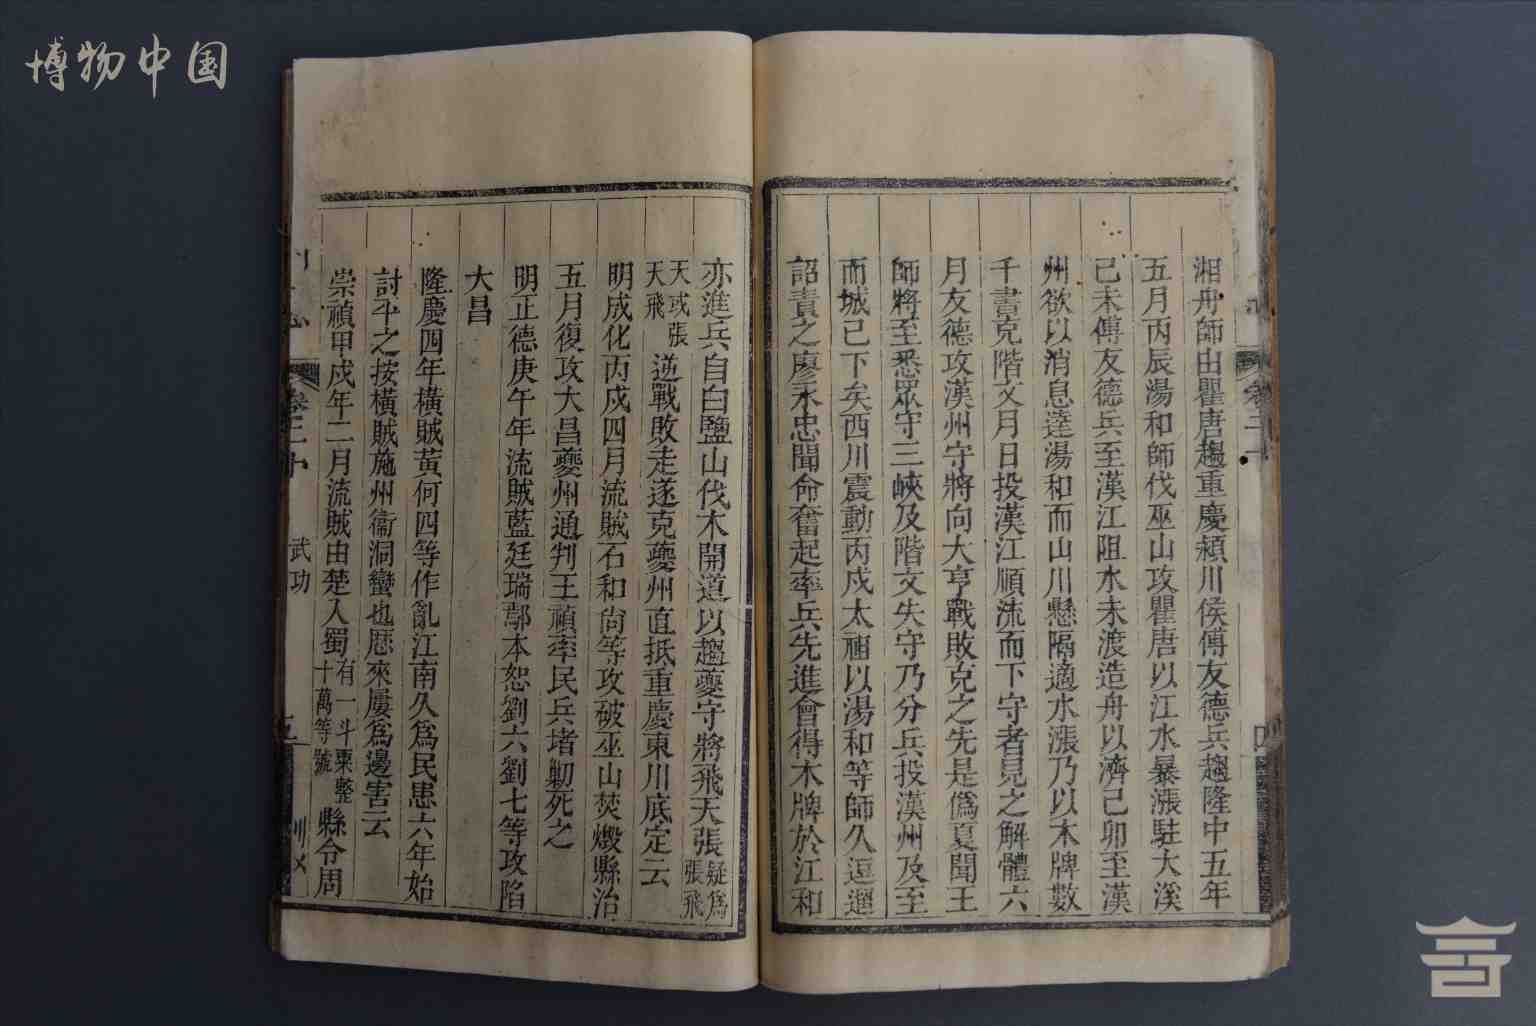 博物中国
湘舟師由瞿唐趨重慶潁川侯傅友德兵趨隆中五年
五月丙辰湯和師伐巫山攻瞿唐以江水暴漲駐大溪
己未傅友德兵至漢江阻水未渡造舟以濟己卯至漢
州欲以消息達湯和而山川懸隔適水漲乃以木牌數
千書克階文月日投漢江順流而下守者見之解體六
月友德攻漢州守將向大亨戰敗克之先是僞夏聞王
師將至悉眾守三峽及階文失守乃分兵投漢州及至
而城已下矣西川震動丙戌太祖以湯和等師久逗遛
詔責之廖永忠聞命奮起率兵先進會得木牌於江和
亦進兵自白鹽山伐木開道以趨夔守將飛天張疑爲張飛
天或張天飛逆戰敗走遂克夔州直抵重慶東川底定云
明成化丙戌四月流賊石和尚等攻破巫山焚燬縣治
五月復攻大昌夔州通判王禎率民兵堵勦死之
明正德庚午年流賊藍廷瑞鄢本恕劉六劉七等攻陷
大昌
隆慶四年橫賊黃何四等作亂江南久爲民患六年始
討平之按橫賊施州衞洞蠻也歷來屢爲邊害云
崇禎甲戌年二月流賊由楚入蜀有一斗粟整十萬等號縣令周
卷三十
武功
五
卷三十
四